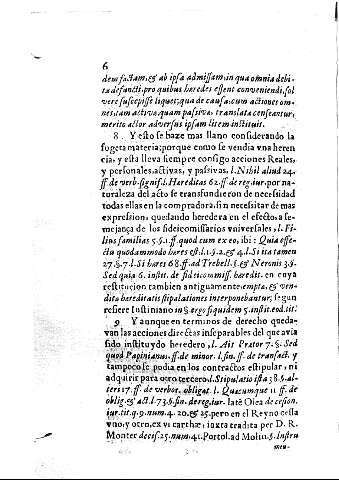 6
dem factam, & ab ipsa admissam, in qua omnia debi-
ta defuncti, pro quibus heredes essent conveniendi, sol
vere suscepisse liquet; qua de causa; cum actiones om-
nes, tam activa, quam passiva, translata censeantur,
merito actor adversus ipsam litem instituit.
8. Y esto se haze mas llano considerando la
sugeta materia; porque como se vendia vna heren
cia, y esta lleva siempre consigo acciones Reales,
y personales, activas, y passivas, l. Nihil aliud 24.
ff. de verb. signif. l. Hereditas 62. ff. de reg. iur. por na-
turaleza del acto se transfundieron de necesidad
todas ellas en la compradora, sin necessitar de mas
expresion, quedando heredera en el efecto, a se-
mejança de los fideicomissarios vniversales, l. Fi-
lius familias 5. §. 1. ff. quod cum ex eo, ibi: Quia effe-
ctu quodammodo hares est. l. 1. §. 2. & 4. l. Si ita tamen
27. §. 7. l. Si hares 68. ff. ad Trebell. §. & Neronis 3. §.
Sed quia 6. instit. de fideicommiss. heredit. en cuya
restitucion tambien antiguamente, empta, & ven-
dita hereditatis stipulationes interponebantur, segun
refiere Iustiniano in §. ergo siquidem 5. instit. eod. tit.
9 Y aunque en terminos de derecho queda-
van las acciones directas inseparables del que avia
sido instituydo heredero, l. Ait Prator 7. §. Sed
quod Papinianus. ff. de minor. l. fin. ff. de transact. y
tampoco se podia en los contractos estipular, ni
adquirir para otro tercero l. Stipulatio ista 38. §. al-
teri 17. ff. de verbor. obligat. l. Quacumque 11. ff. de
oblig. & act. l. 73. §. fin. de reg. iur. latè Olea de cesion.
iur. tit. 9. num. 4. 20. & 25. pero en el Reyno cessa
vno, y otro, ex vi cartha, iuxta tradita per D. R.
Monter decis. 25. num. 41. Portol. ad Molin. §. Instru
men-